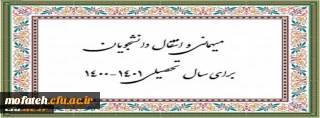 میهمانی و انتقال دانشجویان
برای سال تحصیلی ۱۴۰۱-۱۴۰۰
mofateh.cfu.ac.ir